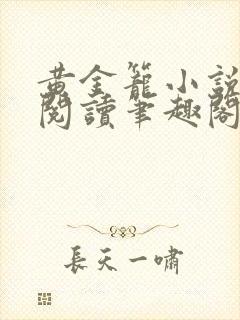 黃金籠小說
閱讀筆趣閣
長天一嘯